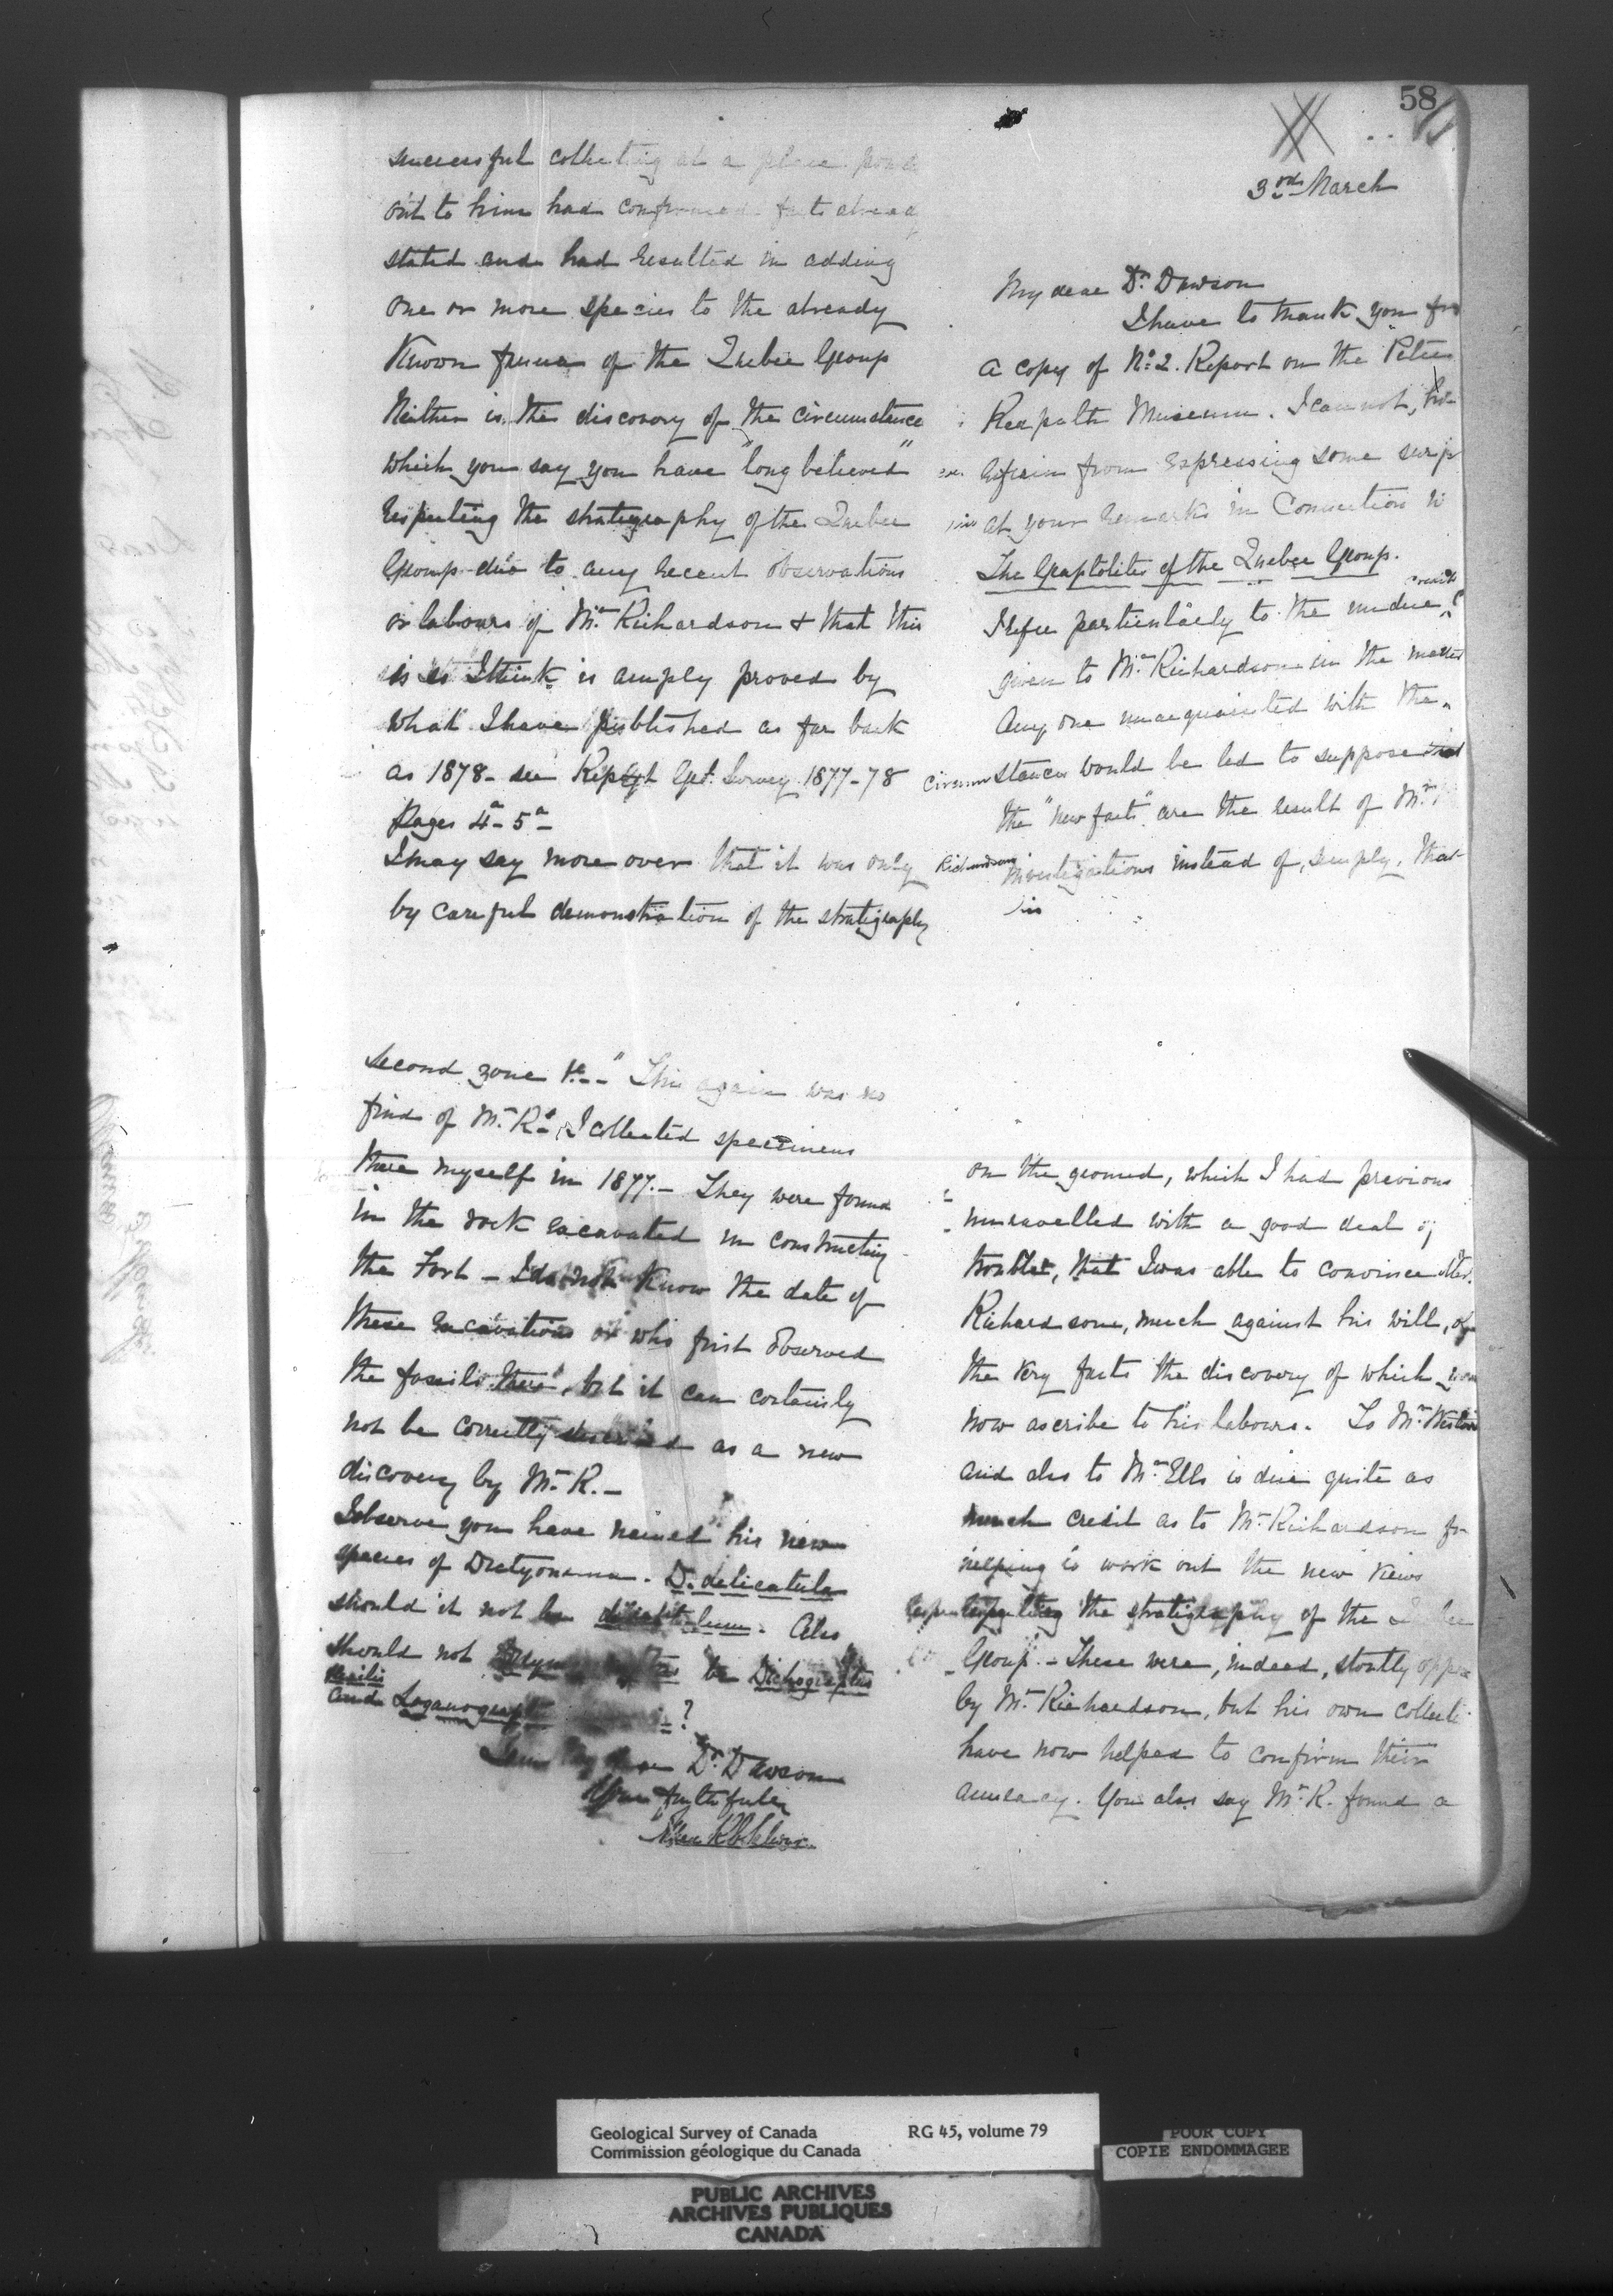 58
3rd March
My dear Dr. Dawson
I have to thank you for
a copy of No. 2. Report on the "Peter
Redpath Museum. I cannot, how
ever refrain from expressing some surp
rise at your remarks in Connection w
The Graptolites of the Quebec Group.
I refer particularly to the undue credit
given to Mr. Richardson in the matter
Any one unacquainted with the
circumstances would be led to suppose that
the "new facts" are the result of Mr.
Richardsons investigations instead of, simply, that
his
successful collecting at a place
out to him had confirmed facts already
stated and had resulted in adding
one or more species to the already
Known fauna of the Quebec Group
Neither is the discovery of the circumstance
which you say you have "long believed"
respecting the stratigraphy of the Quebec
Group due to any recent observations
or labours of Mr. Richardson & that this
is so I think is amply proved by
what I have published as far back
as 1878 - see Report Geol. Survey 1877-78
Pages 4a - 5a
I may say more over that it was only
by careful demonstration of the stratigraphy
on the ground, which I had previous
unravelled with a good deal of
trouble, that I was able to convince Mr.
Richardson, much against his will, of
the very facts the discovery of which you
now ascribe to his labours. To Mr. Weston
and also to Mr. Ells is due quite as
much credit as to Mr. Richardson for
helping to work out the new views
respecting the stratigraphy of the Quebec
Group - These were, indeed, stoutly oppo
by Mr. Richardson, but his own collecti
have now helped to confirm their
accuracy. You also say Mr. R. found a
second zone &c -" This again was no
find of Mr. R's. I collected specimens
there myself in 1877. - They were found
in the rock excavated in constructing
the Fort - I do not know the date of
these excavations or who first observed
the fossils there, but it can certainly
not be correctly described as a new
discovery by Mr. R. -
I observe you have named his new
species of Dictyonema - D. delicatula
should it not be delicatulum. Also
should not be Dichograptus
flexilis
and Loganograptus ?
I am My dear Dr. Dawson
Yours faithfully
Alfred R C Selwyn
Geological Survey of Canada
Commission géologique du Canada
RG 45, volume 79
POOR COPY
COPIE ENDOMMAGEE
PUBLIC ARCHIVES
ARCHIVES PUBLIQUES
CANADA